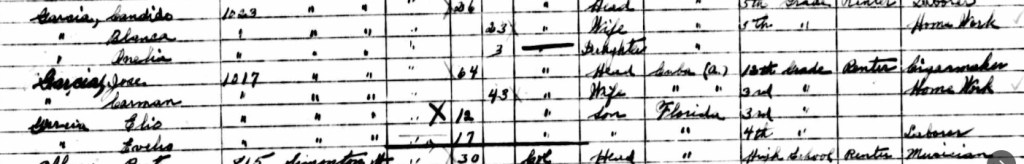 Garcia, Candido 1023 " " " 26 " Head " 5th Grade Renter Laborer
" Blanca " " " " 23 " Wife " 5th " Home Work
" Amelia " " " " 3 Daughter "
Garcia, Jose 1017 " " " 64 " Head Cuba (a) 12th Grade Renter Cigarmaker
" Carman " " " " 43 " Wife " " 3rd " Home Work
Garcia Elio " " " " X 12 " Son Florida 3rd "
" Evelio " " " " 17 " " " 4th " Laborer
715 Simonton St " 30 Col Head " High School Renter Musician